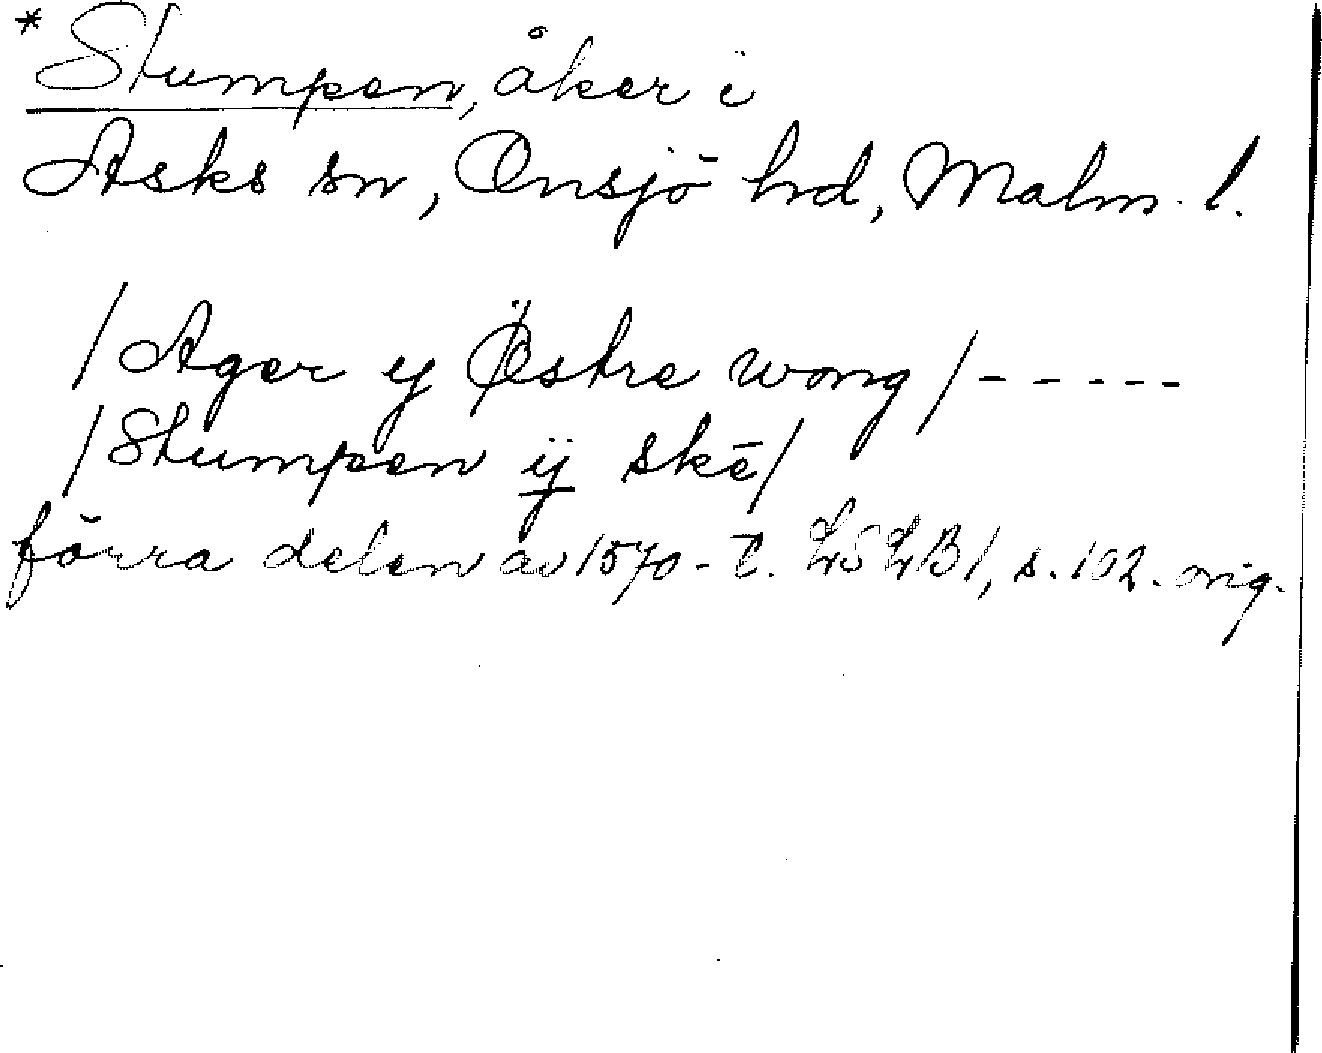 *Stumpen, åker i
Asks sn, Onsjö hd, Malm. l.
/Ager y Østre wong/-----
/Stumpen ij skē/
förra delen av 1570-t. LSLB1, s. 102. orig.